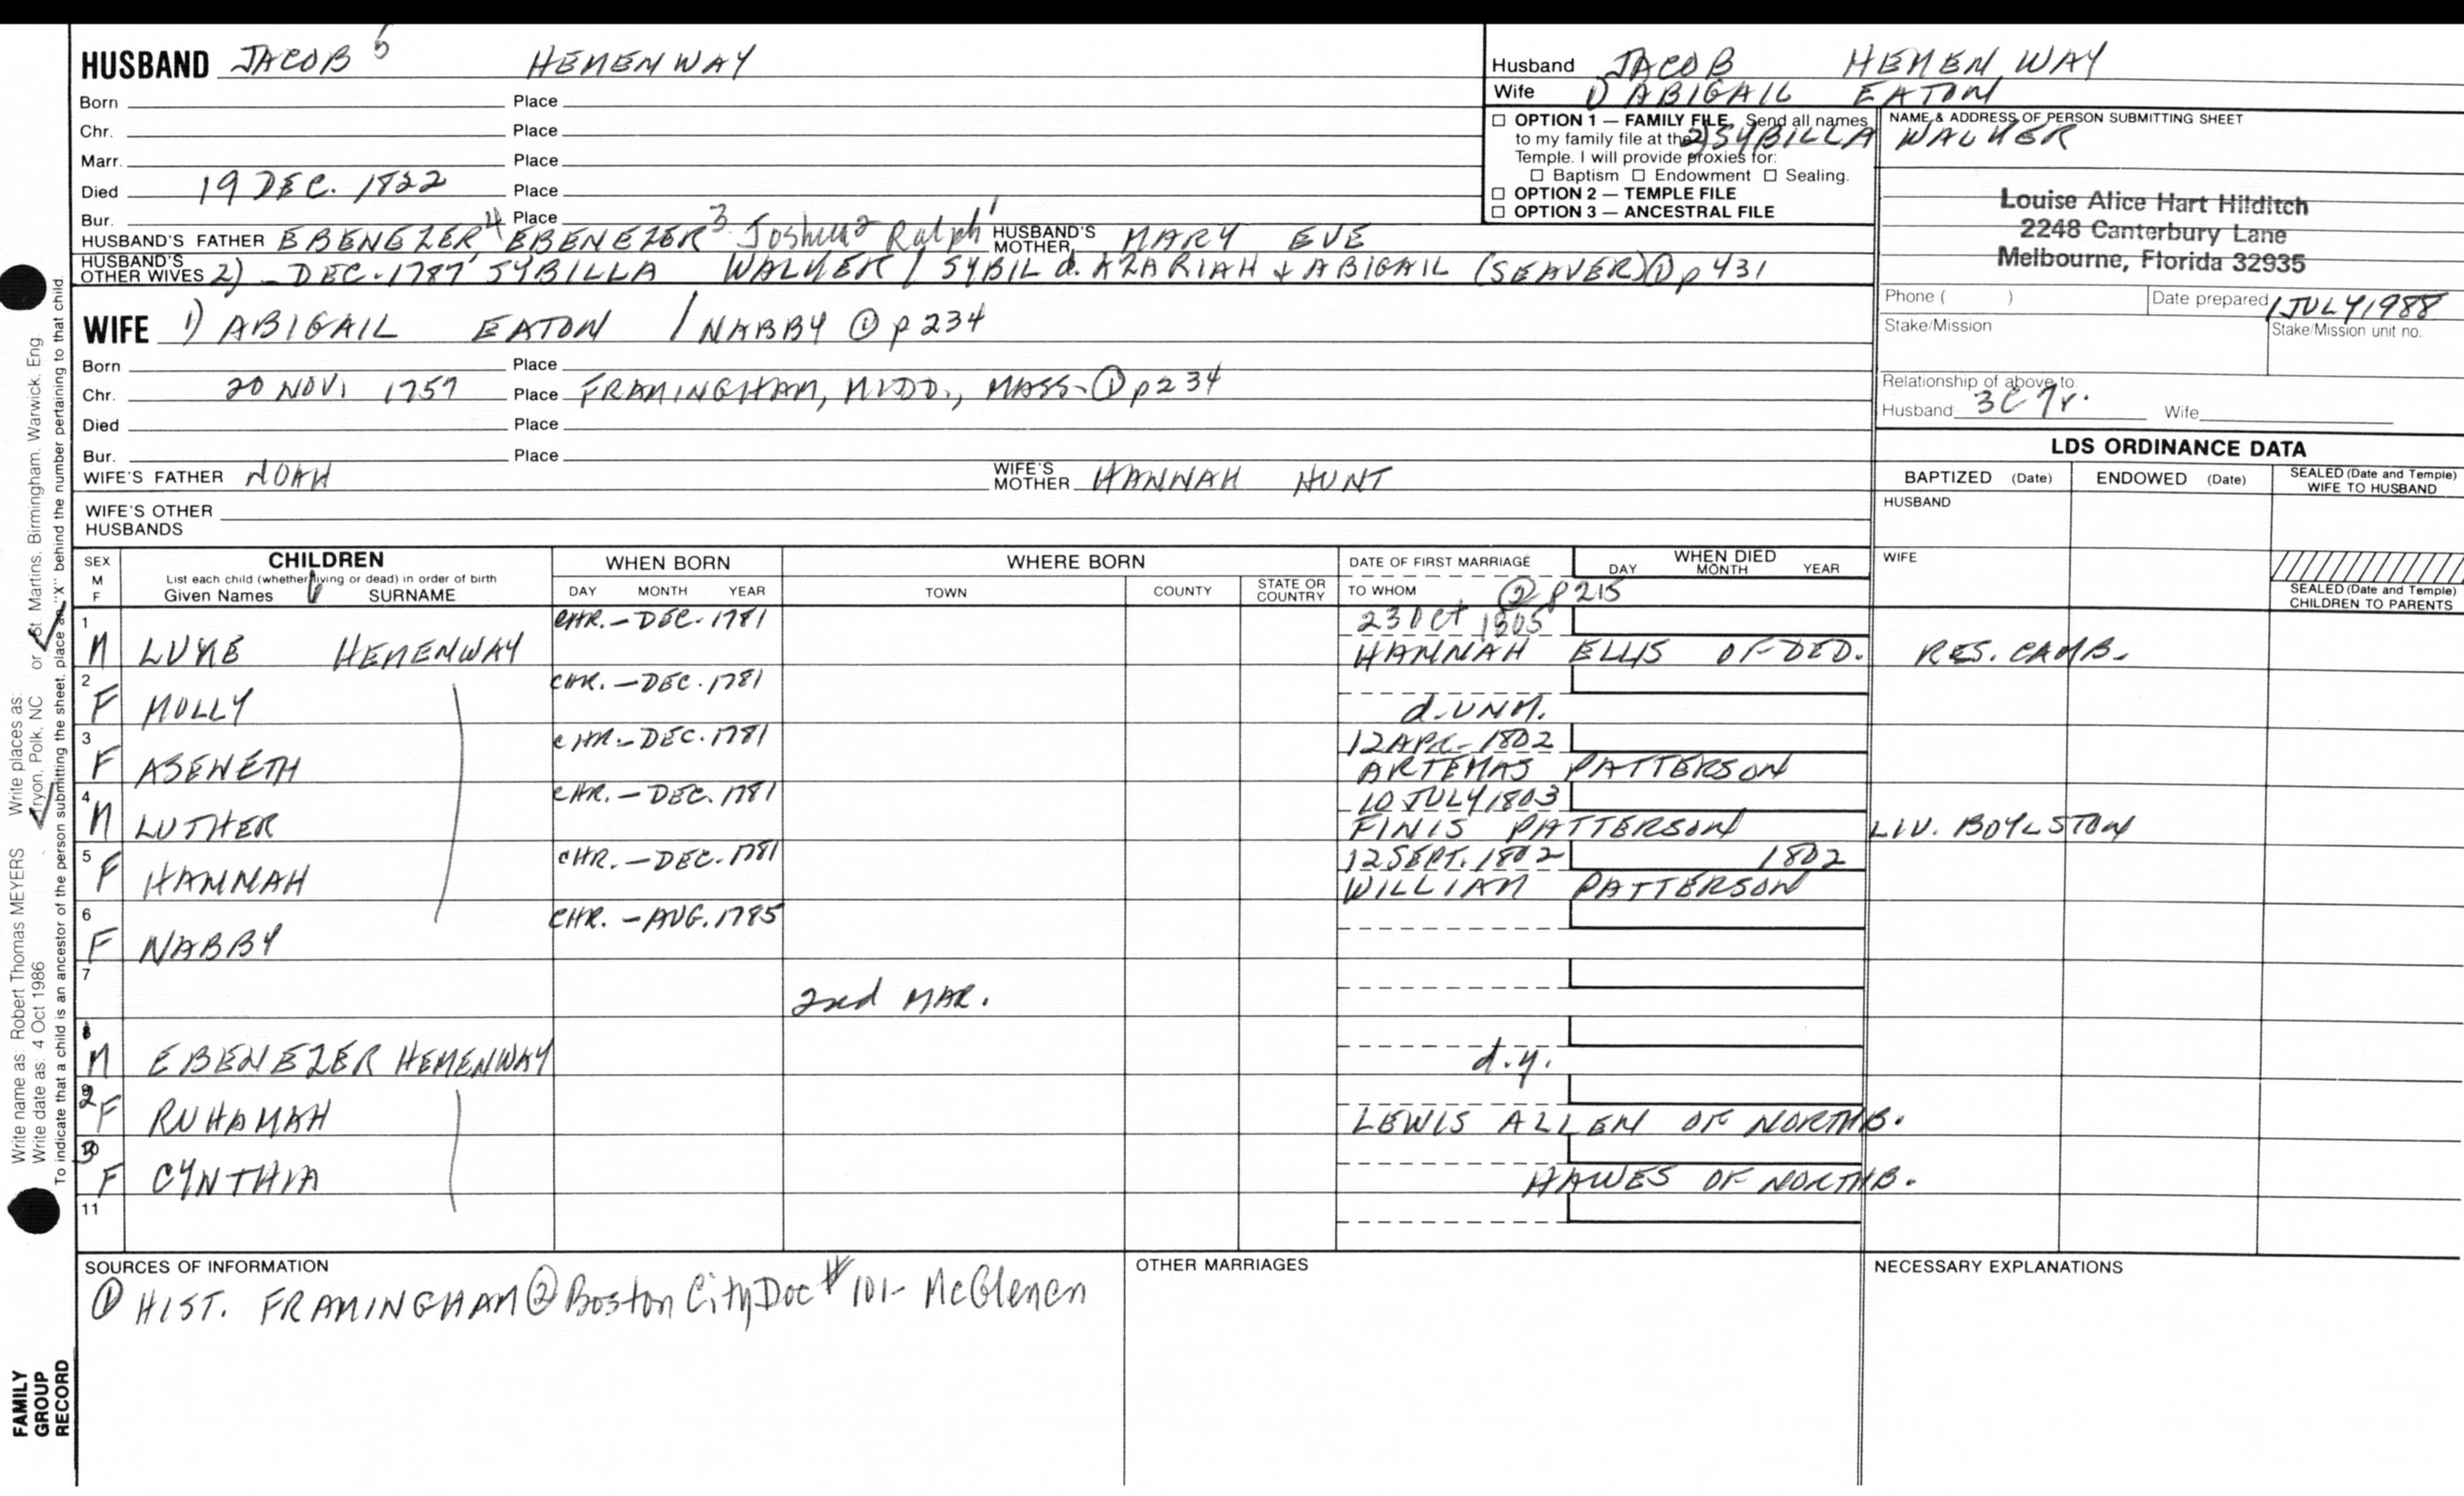 HUSBAND JACOB 5 HEMENWAY
Born Place
Chr. Place
Marr. Place
Died 19 DEC. 1822 Place
Bur. Place
HUSBAND'S FATHER EBENEZER 4, EBENEZER 3 Joshua 2 Ralph 1 HUSBAND'S MOTHER MARY EVE
HUSBAND'S OTHER WIVES 2) - DEC. 1787 SYBILLA WALKER / SYBIL d. AZARIAH & ABIGAIL (SEAVER) ① p 431
WIFE 1) ABIGAIL EATON / NABBY ① p 234
Born Place
Chr. 20 NOV. 1757 Place FRAMINGHAM, MIDD., MASS. ① p 234
Died Place
Bur. Place
WIFE'S FATHER NOAH WIFE'S MOTHER HANNAH HUNT
WIFE'S OTHER HUSBANDS
Husband JACOB HEMENWAY
Wife 1) ABIGAIL EATON
2) SYBILLA WALKER
☐ OPTION 1 — FAMILY FILE. Send all names
to my family file at the
Temple. I will provide proxies for:
☐ Baptism ☐ Endowment ☐ Sealing.
☐ OPTION 2 — TEMPLE FILE
☐ OPTION 3 — ANCESTRAL FILE
NAME & ADDRESS OF PERSON SUBMITTING SHEET
Louise Alice Hart Hilditch
2248 Canterbury Lane
Melbourne, Florida 32935
Phone ( ) Date prepared 1 JULY 1988
Stake/Mission Stake/Mission unit no.
Relationship of above to:
Husband 3C7r. Wife
LDS ORDINANCE DATA
BAPTIZED (Date) ENDOWED (Date) SEALED (Date and Temple) WIFE TO HUSBAND
HUSBAND
WIFE
SEALED (Date and Temple) CHILDREN TO PARENTS
SEX M F CHILDREN WHEN BORN WHERE BORN DATE OF FIRST MARRIAGE WHEN DIED
List each child (whether living or dead) in order of birth
Given Names SURNAME DAY MONTH YEAR TOWN COUNTY STATE OR COUNTRY TO WHOM DAY MONTH YEAR
② p 215
1 CHR. - DEC. 1781 23 Oct 1805
M LUKE HEMENWAY HANNAH ELLIS OF DED. RES. CAMB.
2 CHR. - DEC. 1781
F MOLLY d. UNM.
3 CHR. - DEC. 1781 12 APR. 1802
F ASENETH ARTEMAS PATTERSON
4 CHR. - DEC. 1781 10 JULY 1803
M LUTHER FINIS PATTERSON LIV. BOYLSTON
5 CHR. - DEC. 1781 12 SEPT. 1802 1802
F HANNAH WILLIAM PATTERSON
6 CHR. - AUG. 1785
F NABBY
7
2nd MAR.
1
M EBENEZER HEMENWAY d.y.
2
F RUHAMAH LEWIS ALLEN OF NORTHB.
3
F CYNTHIA HAWES OF NORTHB.
11
SOURCES OF INFORMATION
① HIST. FRAMINGHAM ② Boston City Doc # 101- McGlenen
OTHER MARRIAGES
NECESSARY EXPLANATIONS
Write name as: Robert Thomas MEYERS Write places as: Tryon, Polk, NC or St. Martins, Birmingham, Warwick, Eng.
Write date as: 4 Oct 1986
To indicate that a child is an ancestor of the person submitting the sheet, place an "X" behind the number pertaining to that child.
FAMILY
GROUP
RECORD